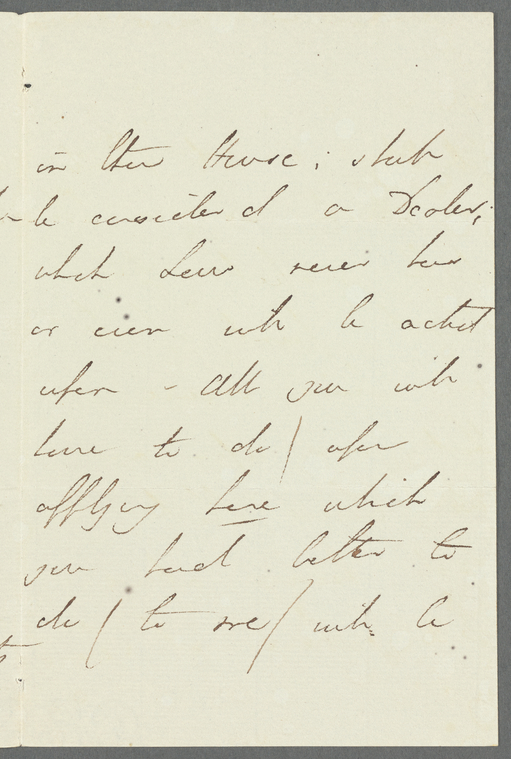 in the House; shall
be considered a Dealer;
which Law never has
or ever will be acted
upon - All you will
have to do / upon
applying here which
you had better to
do / to me / will be